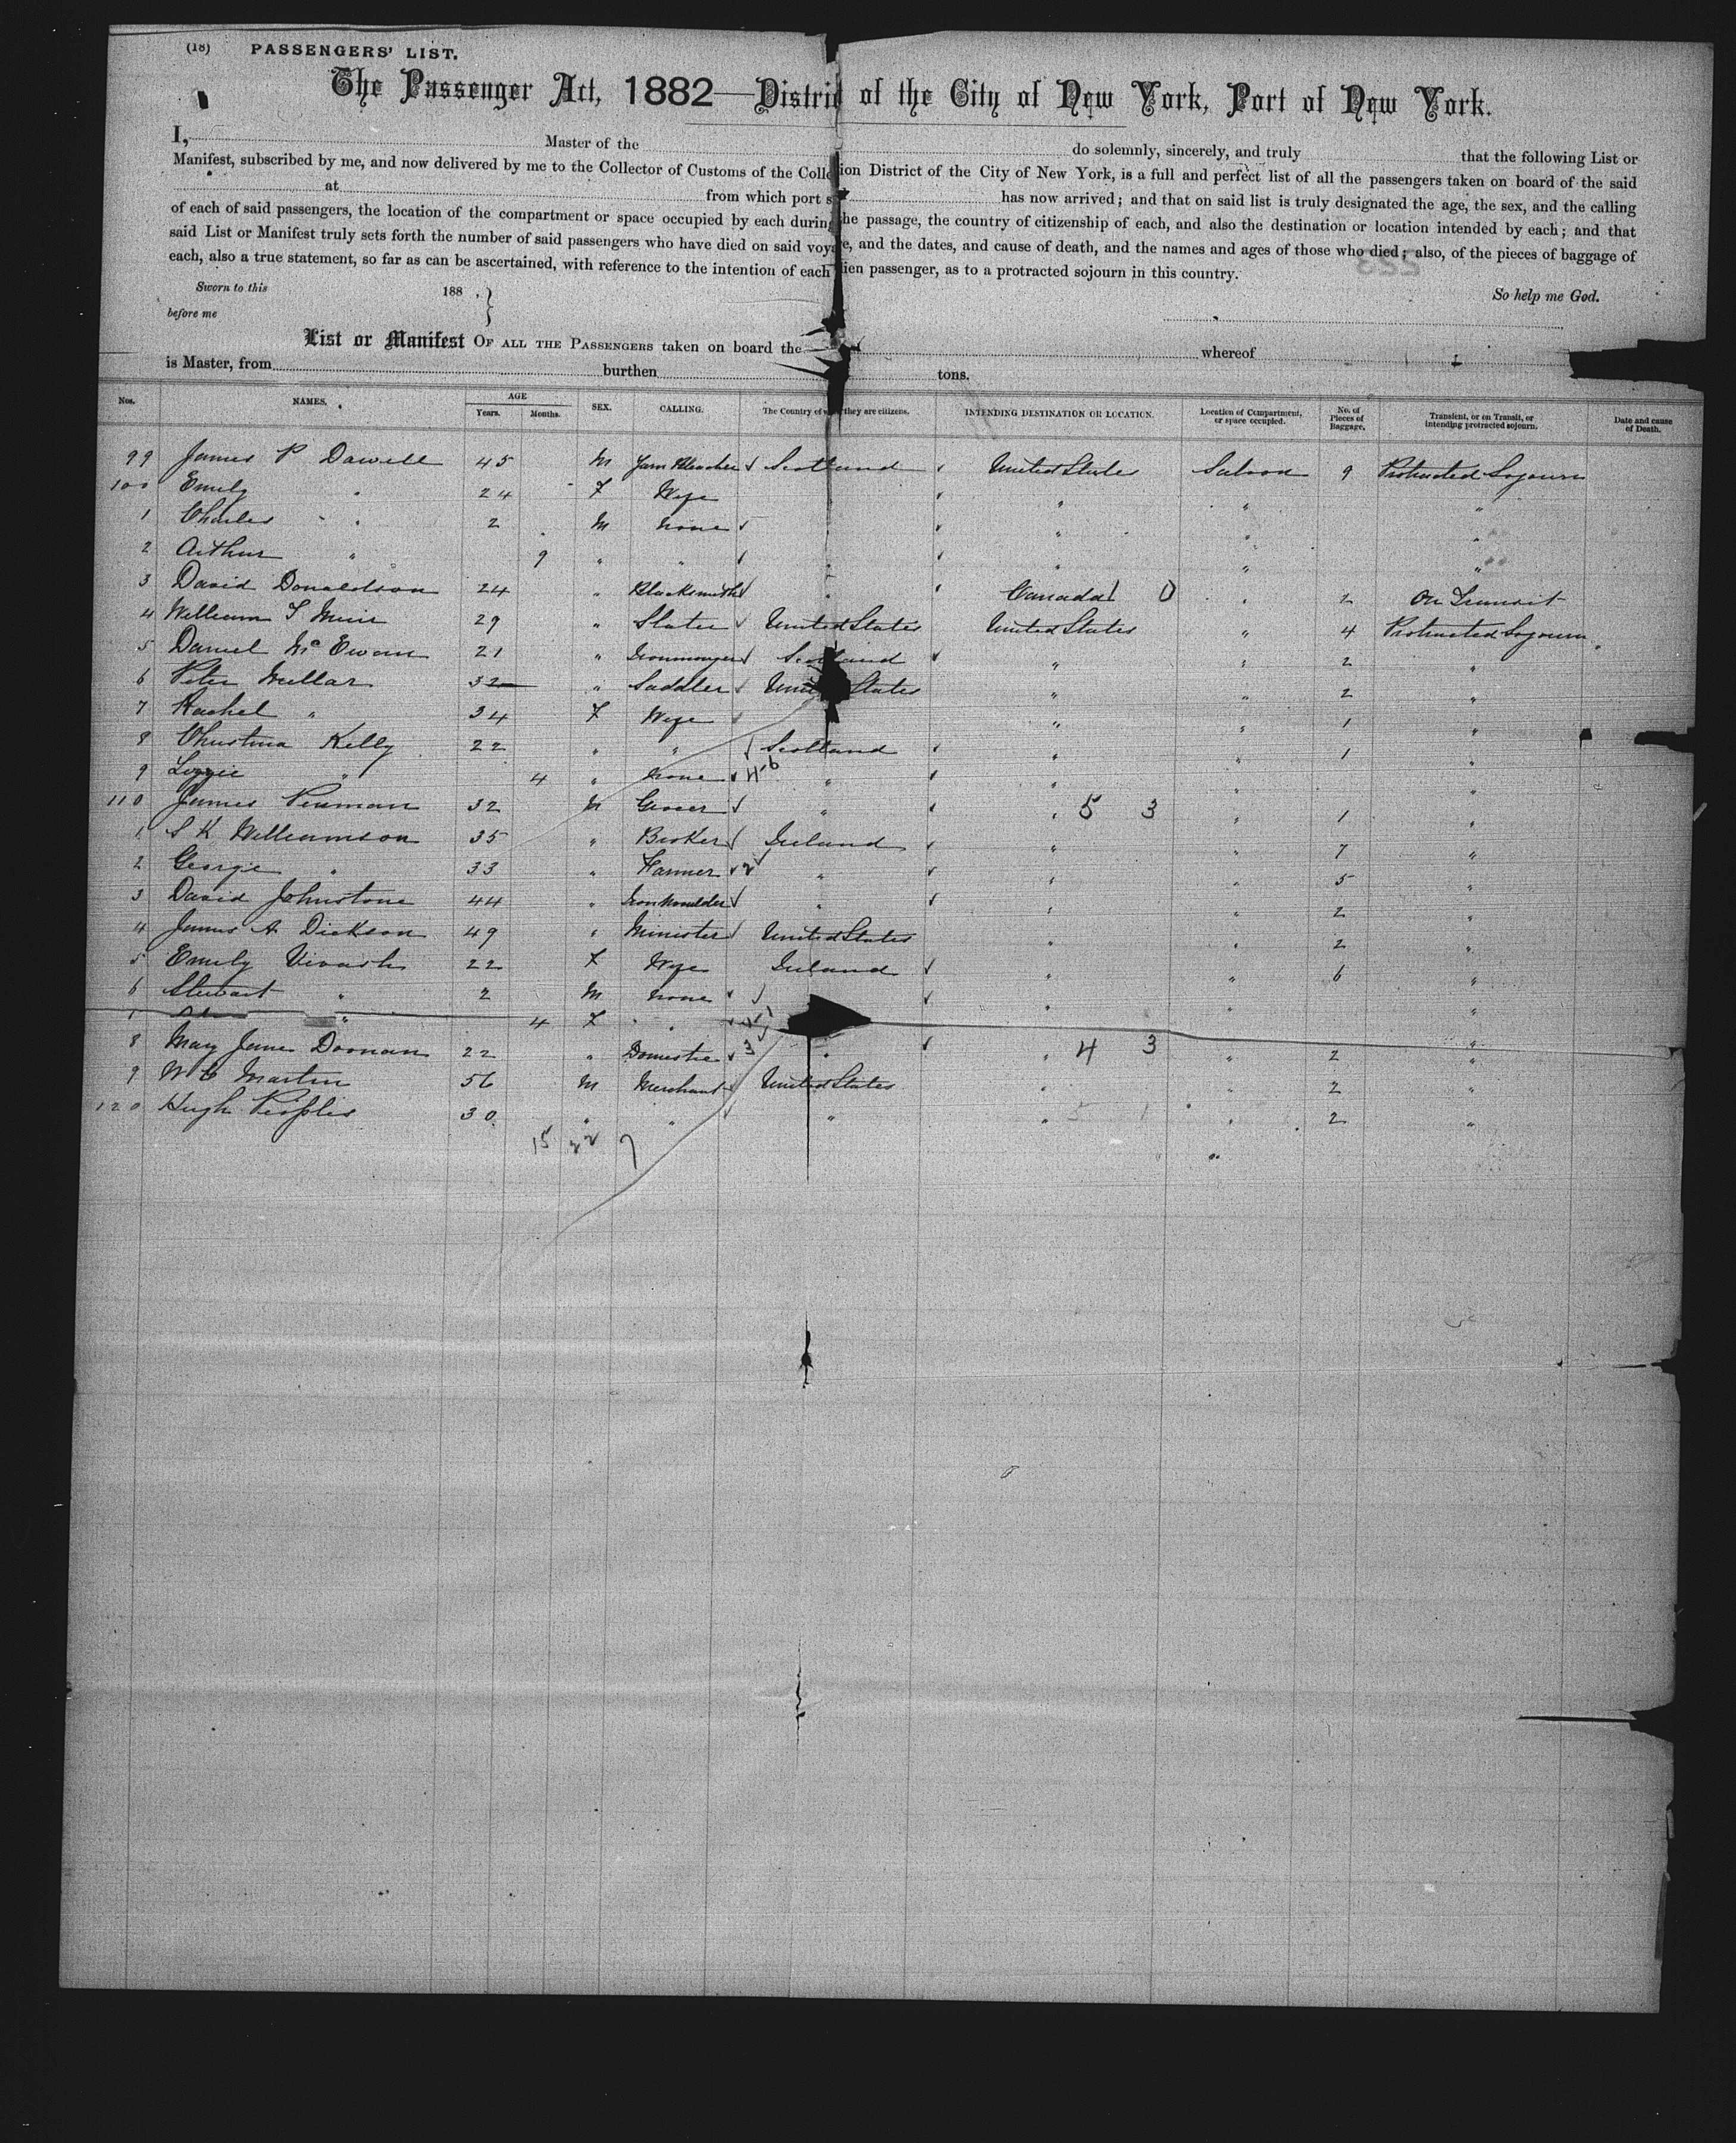 (18) PASSENGERS' LIST.
The Passenger Act, 1882—District of the City of New York, Port of New York.
I, Master of the do solemnly, sincerely, and truly that the following List or
Manifest, subscribed by me, and now delivered by me to the Collector of Customs of the Collection District of the City of New York, is a full and perfect list of all the passengers taken on board of the said
at from which port has now arrived; and that on said list is truly designated the age, the sex, and the calling
of each of said passengers, the location of the compartment or space occupied by each during the passage, the country of citizenship of each, and also the destination or location intended by each; and that
said List or Manifest truly sets forth the number of said passengers who have died on said voyage, and the dates, and cause of death, and the names and ages of those who died; also, of the pieces of baggage of
each, also a true statement, so far as can be ascertained, with reference to the intention of each alien passenger, as to a protracted sojourn in this country.
Sworn to this 188 . } So help me God.
before me
List or Manifest OF ALL THE PASSENGERS taken on board the whereof
is Master, from burthen tons.
Nos. NAMES. AGE Years. Months. SEX. CALLING. The Country of they are citizens. INTENDING DESTINATION OR LOCATION. Location of Compartment, or space occupied. No. of Pieces of Baggage. Transient, or on Transit, or intending protracted sojourn. Date and cause of Death.
99 James P Dowell 45 M Yarn Bleacher Scotland United States Saloon 9 Protracted Sojourn
100 Emily " 24 F Wife " " "
1 Charles " 2 M none " " "
2 Arthur " 9 " " " " " "
3 David Donaldson 24 " Blacksmith " Canada 1 0 " 2 On Transit
4 William Muir 29 " Slater United States United States " 4 Protracted Sojourn
5 Daniel McEwan 21 " Ironmonger Scotland " " 2 "
6 Peter Mellar 32 " Saddler United States " " 2 "
7 Rachel " 34 F Wife " " 1 "
8 Christina Kelly 22 " " Scotland " " 1 "
9 Lizzie " 4 " none 4-6 " " " "
110 James Penman 32 M Grocer " " 5 3 " 1 "
1 S K Williamson 35 " Broker Ireland " " 7 "
2 George " 33 " Farmer 2 " " " 5 "
3 David Johnstone 44 " Iron Moulder " " " 2 "
4 James A Dickson 49 " Minister United States " " 2 "
5 Emily 22 F Wife Ireland " " 6 "
6 Stewart " 2 M none " " "
" 4 F " "
8 Mary Jane Doonan 22 " Domestic 3 " " 4 3 " 2 "
9 W Martin 56 M Merchant United States " " 2 "
120 Hugh Peoples 30 " " " " 5 1 " 2 "
15 22 7